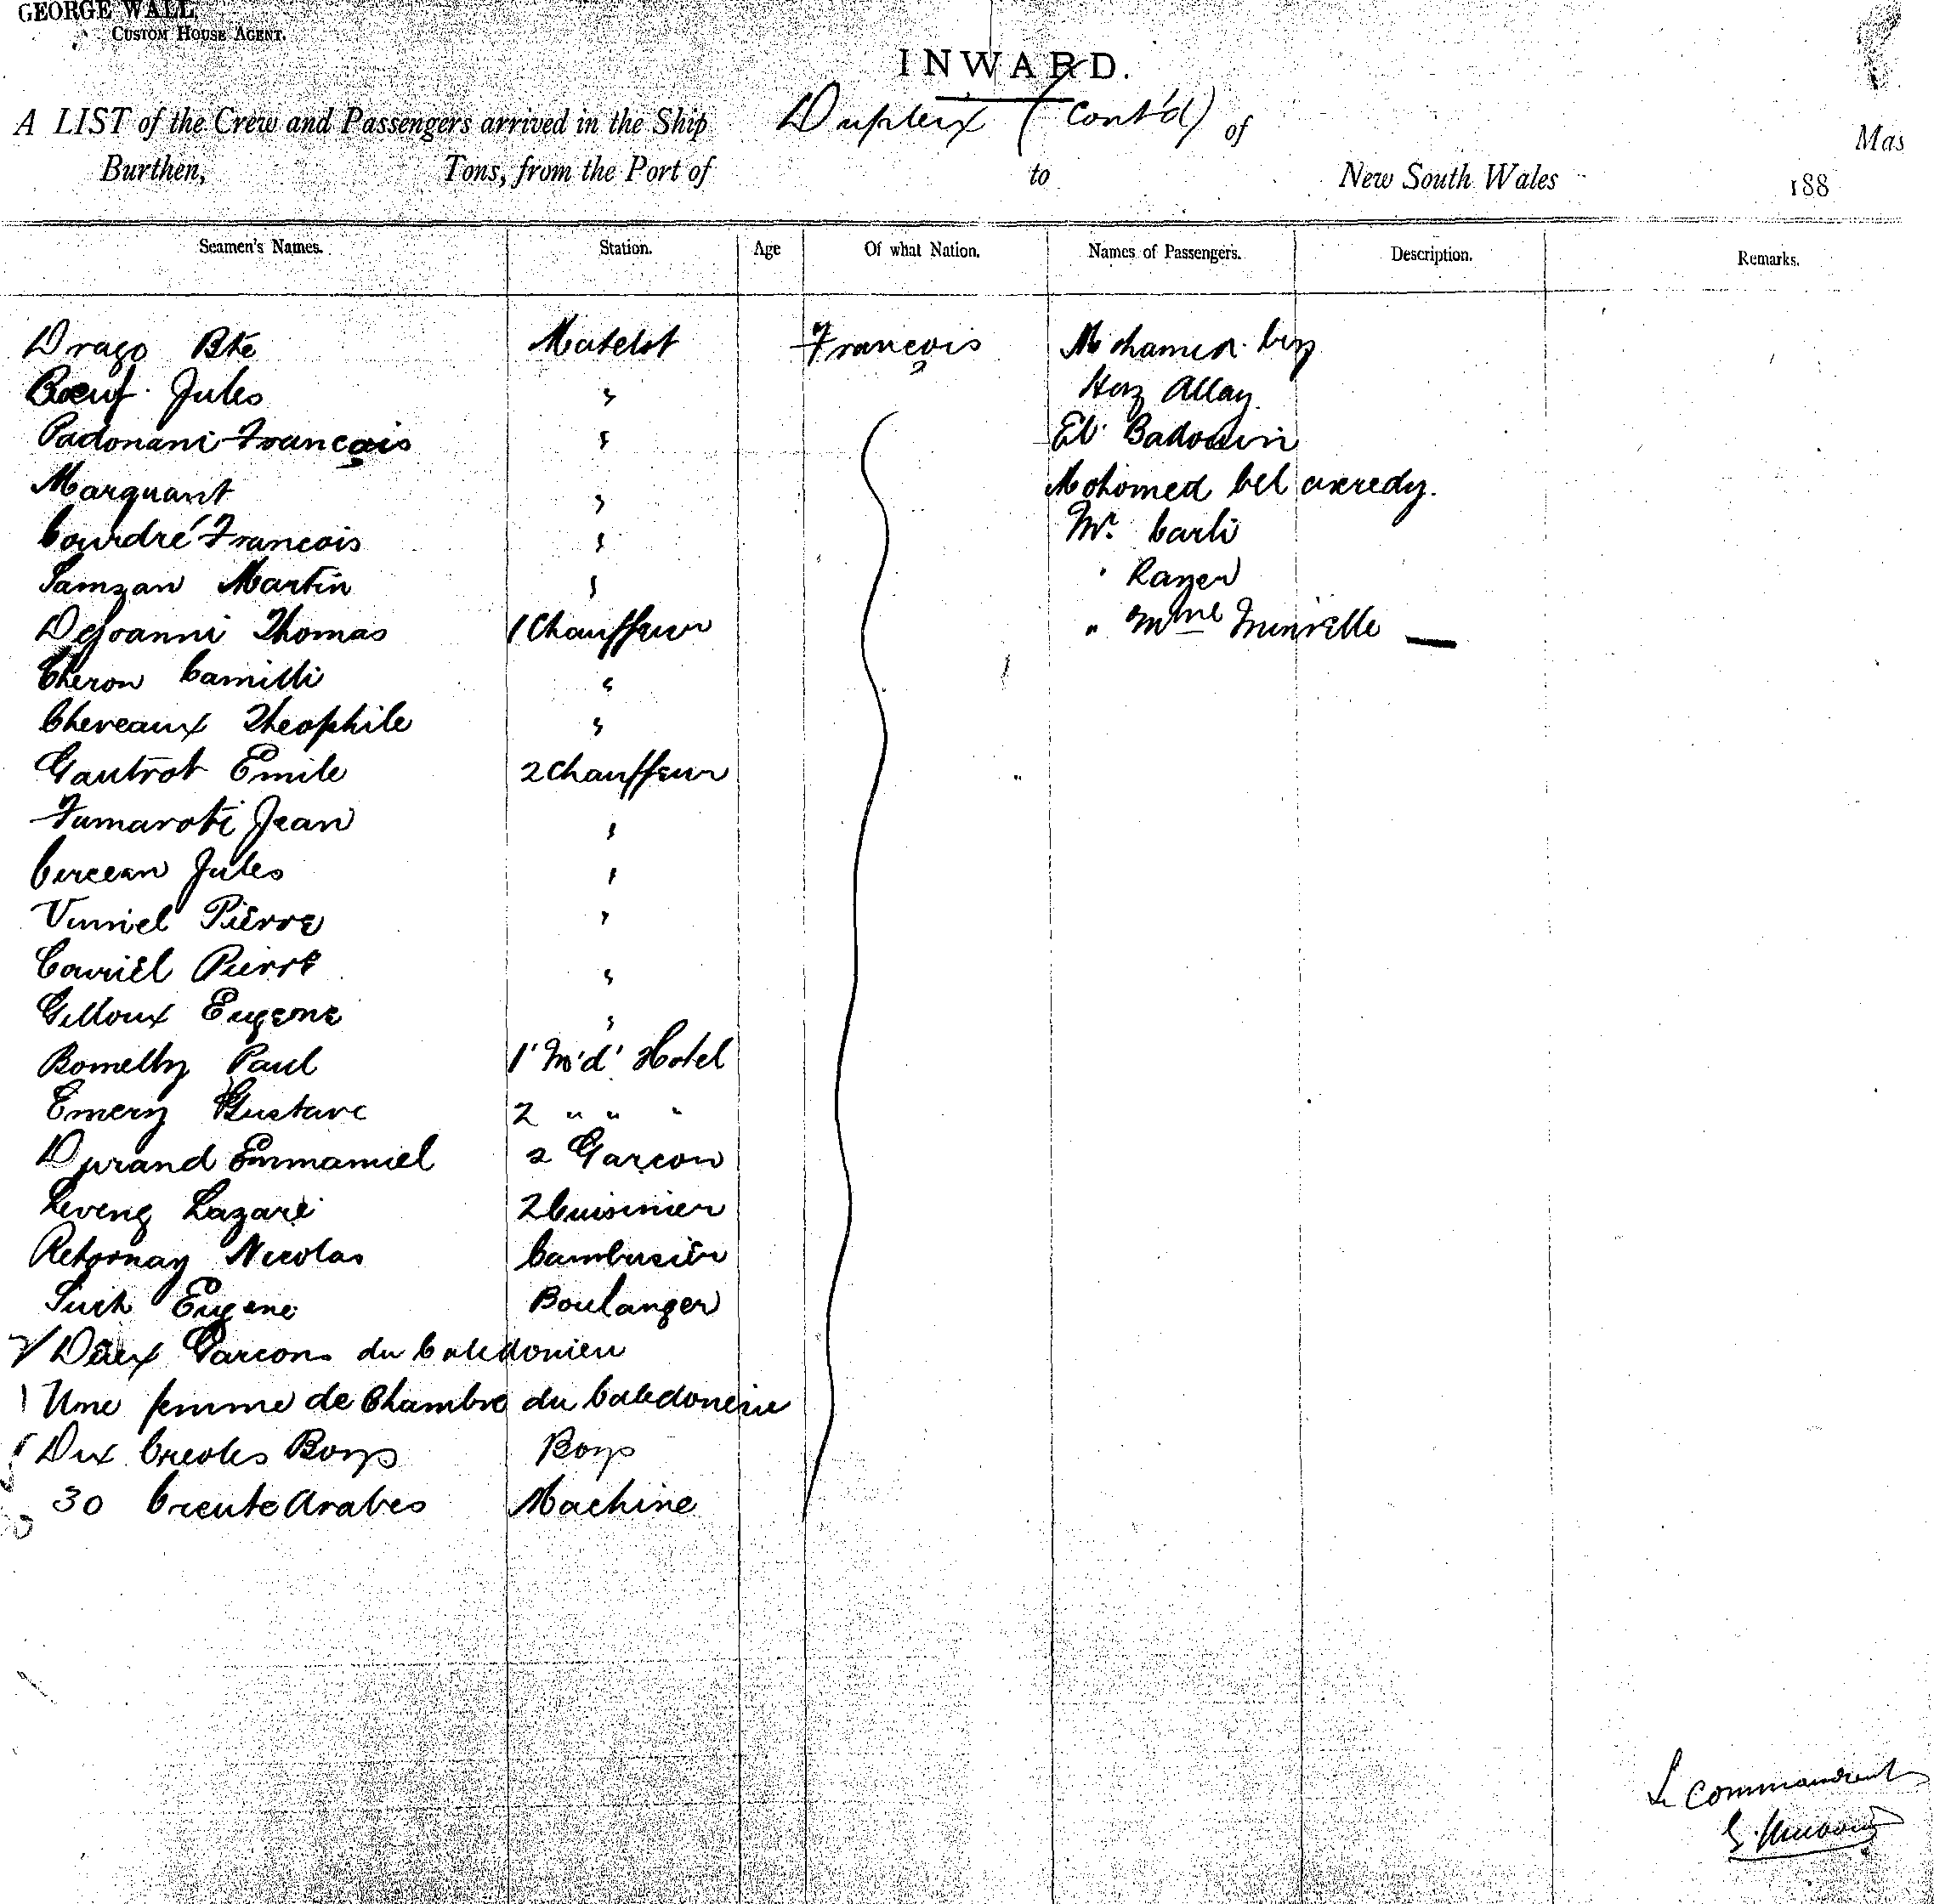 GEORGE WALL,
CUSTOM HOUSE AGENT.
INWARD.
A LIST of the Crew and Passengers arrived in the Ship Dupleix (Cont'd) of Mas
Burthen, Tons, from the Port of to New South Wales 188
Seamen's Names. Station. Age Of what Nation. Names of Passengers. Description. Remarks.
Drago Bte Matelot Francois Mohamed ben
Boeuf Jules " Allay
Padonani Francois " El Badouin
Marquant " Mohomed bel
Courdré Francois " Mr. Carli
Samzan Martin " " Rayer
Dejoanni Thomas 1 Chauffeur " Mme
Cheron Camilli "
Chereaux Theophile "
Gautrot Emile 2 Chauffeur
Fumaroti Jean "
Jules "
Pierre "
Couriel Pierre "
Gilloux Eugene "
Paul 1 M'd' Hotel
Emery Gustave 2 " " "
Durand Emmanuel 2 Garcon
Lazare 2 Cuisinier
Retornay Nicolas Cambusier
Eugene Boulanger
2/ Deux Garcons du Caledonien
1 Une femme de Chambre du Caledonien
Dix Creoles Boys Boys
30 Arabes Machine
Le Commandant